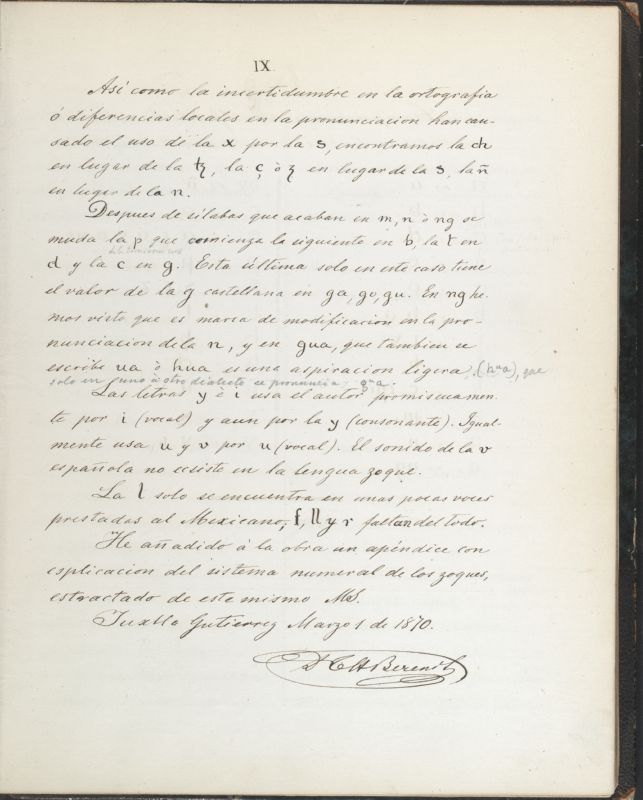 IX.
Así como la incertidumbre en la ortografia
ó diferencias locales en la pronunciacion han cau-
sado el uso de la x por la s, encontramos la ch
en lugar de la tz, la ç ò z en lugar de la s, la ñ
en lugar de la n.
Despues de sílabas que acaban en m, n ò ng se
muda la p que comienza la siguiente en b, la t en
d y la c en g. Esta última solo en este caso tiene
el valor de la g castellana en ga, go, gu. En ng he-
mos visto que es marca de modificacion en la pro-
nunciacion de la n, y en gua, que tambien se
escribe ua ò hua es una aspiracion ligera (hua), que
solo en uno ù otro dialecto se pronuncia gua.
Las letras y è i usa el autor promiscuamen-
te por i (vocal) y aun por la y (consonante). Igual-
mente usa u y v por u (vocal). El sonido de la v
española no ecsiste en la lengua zoque.
La l solo se encuentra en unas pocas voces
prestadas al Mexicano; f, ll y r faltan del todo.
He añadido á la obra un apéndice con
esplicacion del sistema numeral de los zoques,
estractado de este mismo MS.
Tuxtla Gutierrez Marzo 1 de 1870.
Dr C H Berendt